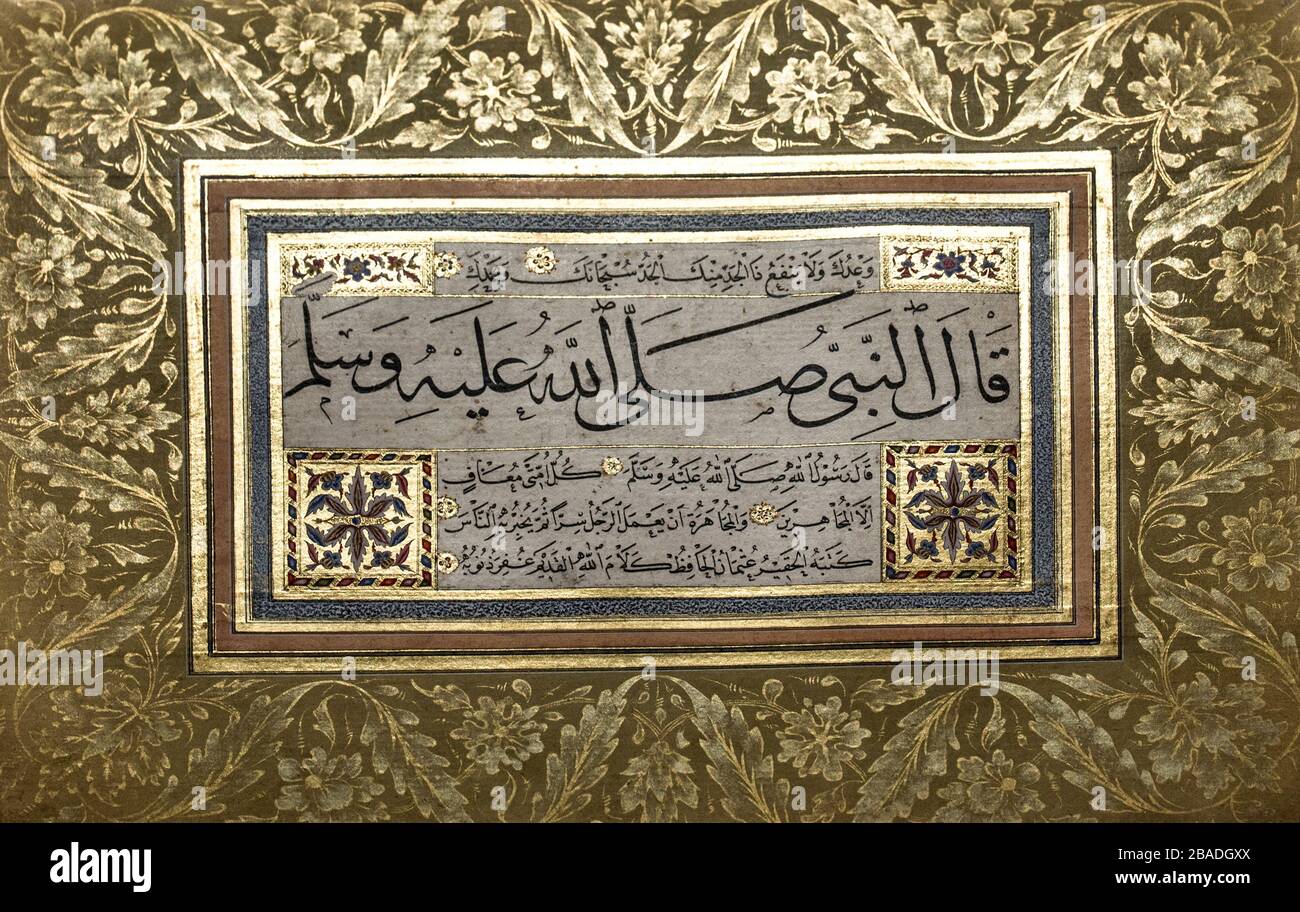 وَعْدُكَ وَلَا يَنْفَعُ ذَا الْجَدِّ مِنْكَ الْجَدُّ سُبْحَانَكَ وَبِحَمْدِكَ
قَالَ النَّبِيُّ صَلَّى اللَّهُ عَلَيْهِ وَسَلَّمَ
قَالَ رَسُولُ اللَّهِ صَلَّى اللَّهُ عَلَيْهِ وَسَلَّمَ كُلُّ أُمَّتِي مُعَافًى
إِلَّا الْمُجَاهِرِينَ وَالْمُجَاهَرَةُ أَنْ يَعْمَلَ الرَّجُلُ سِرًّا ثُمَّ يُخْبِرُ بِهِ النَّاسَ
كَتَبَهُ الْحَقِيرُ عُثْمَانُ الْحَافِظُ كَلَامَ اللَّهِ الْقَدِيمِ غُفِرَ ذُنُوبُهُ
alamy
alamy
Image ID: 2BADGXX
www.alamy.com